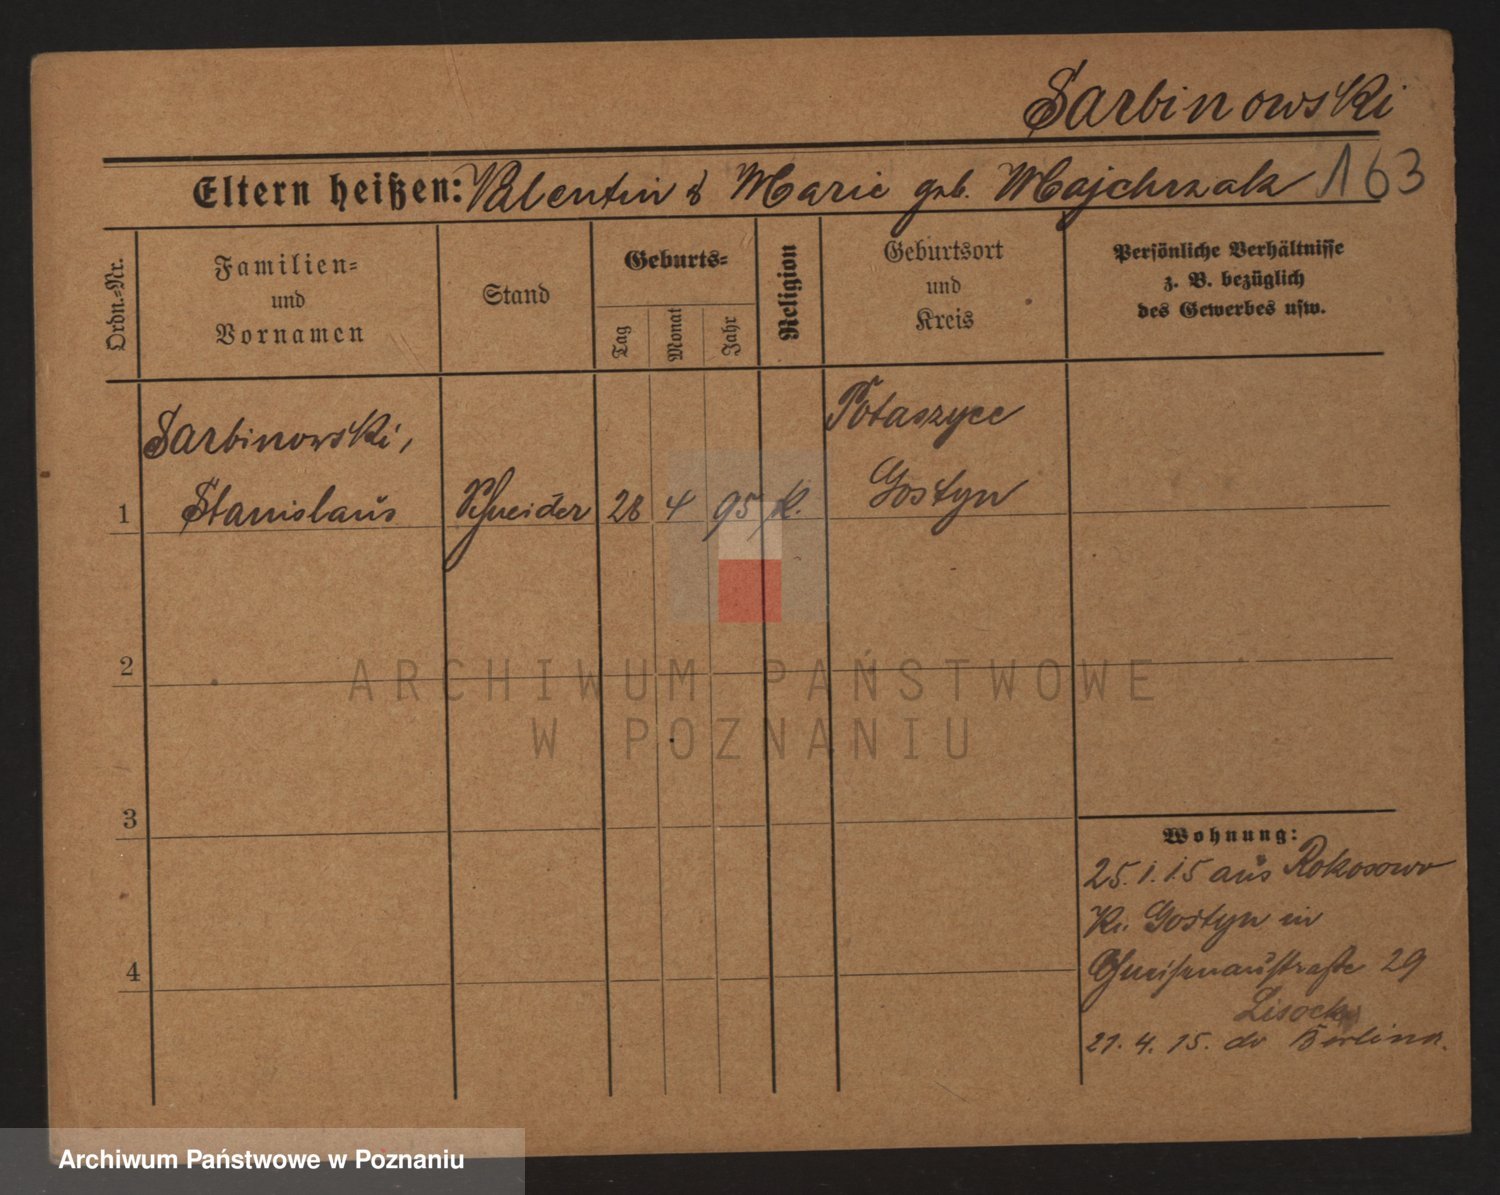 Sarbinowski
Eltern heißen: Valentin & Marie geb. Majchrzak 163
Ordn.-Nr.
Familien-
und
Vornamen
Stand
Geburts-
Tag
Monat
Jahr
Religion
Geburtsort
und
Kreis
Persönliche Verhältnisse
z. B. bezüglich
des Gewerbes usw.
Potaszyce
Sarbinowski,
1 Stanislaus Schneider 28 4 95 k. Gostyn
2
ARCHIWUM PAŃSTWOWE
W POZNANIU
3
Wohnung:
25.1.15 aus Rokosowo
Kr. Gostyn in
Gneisenaustraße 29
4
Lisock
21. 4. 15. do Berlina.
Archiwum Państwowe w Poznaniu